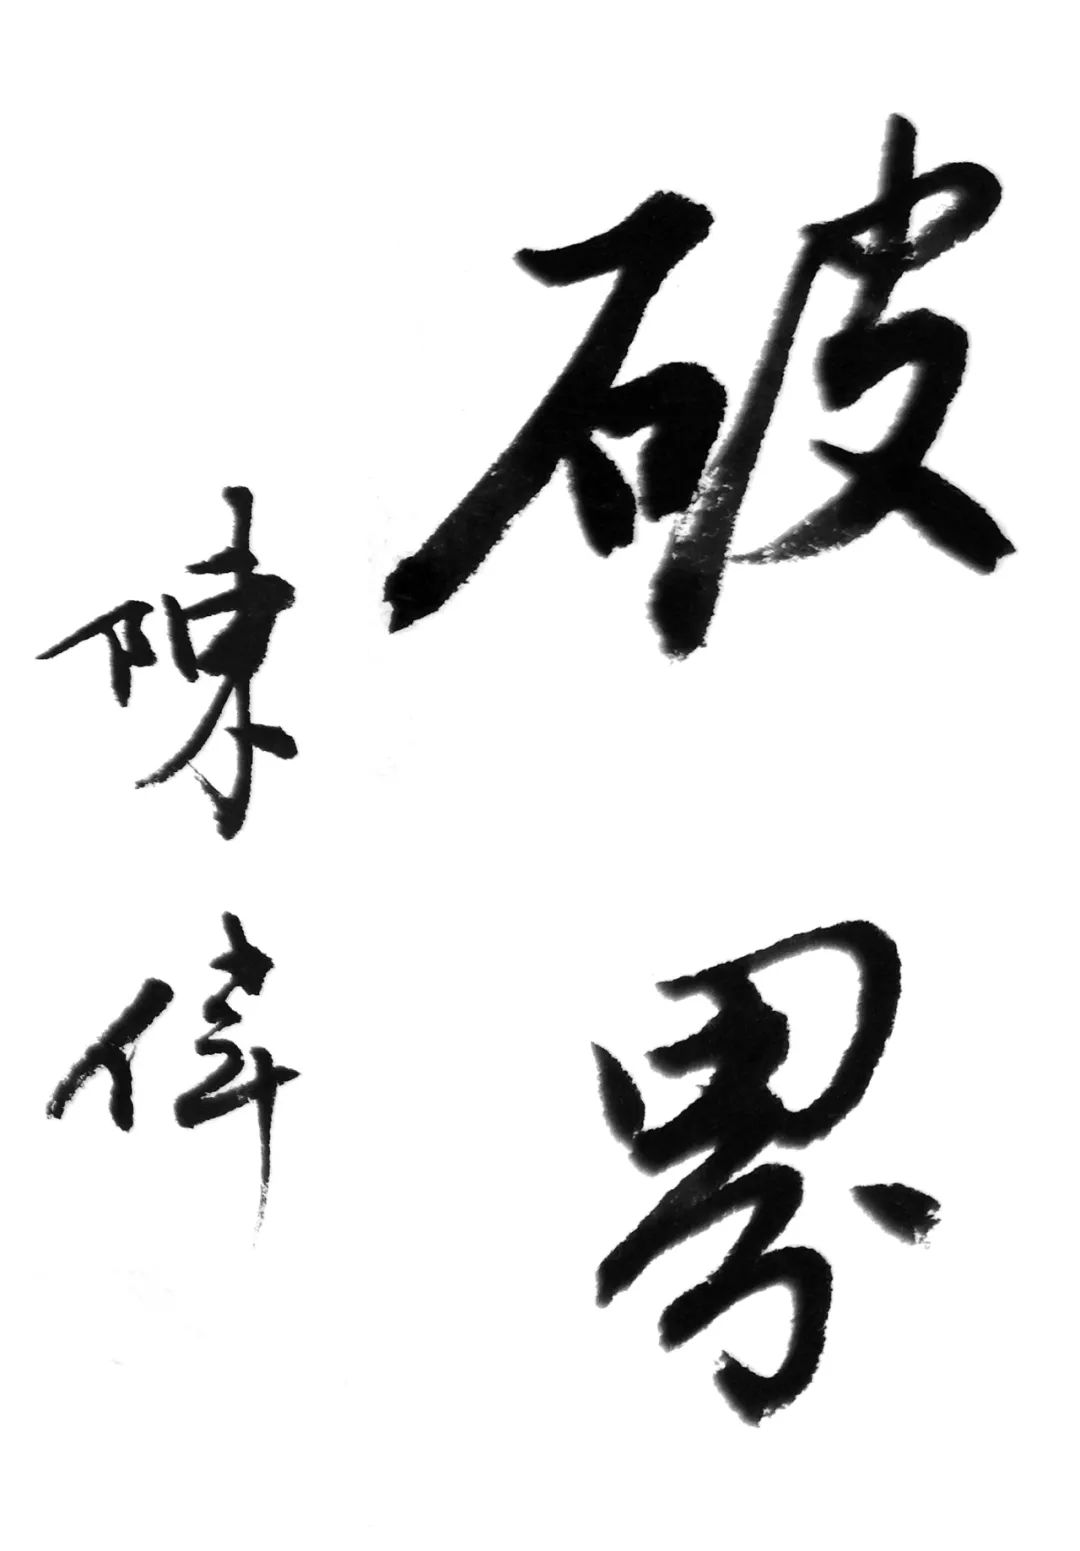 破界
陳偉